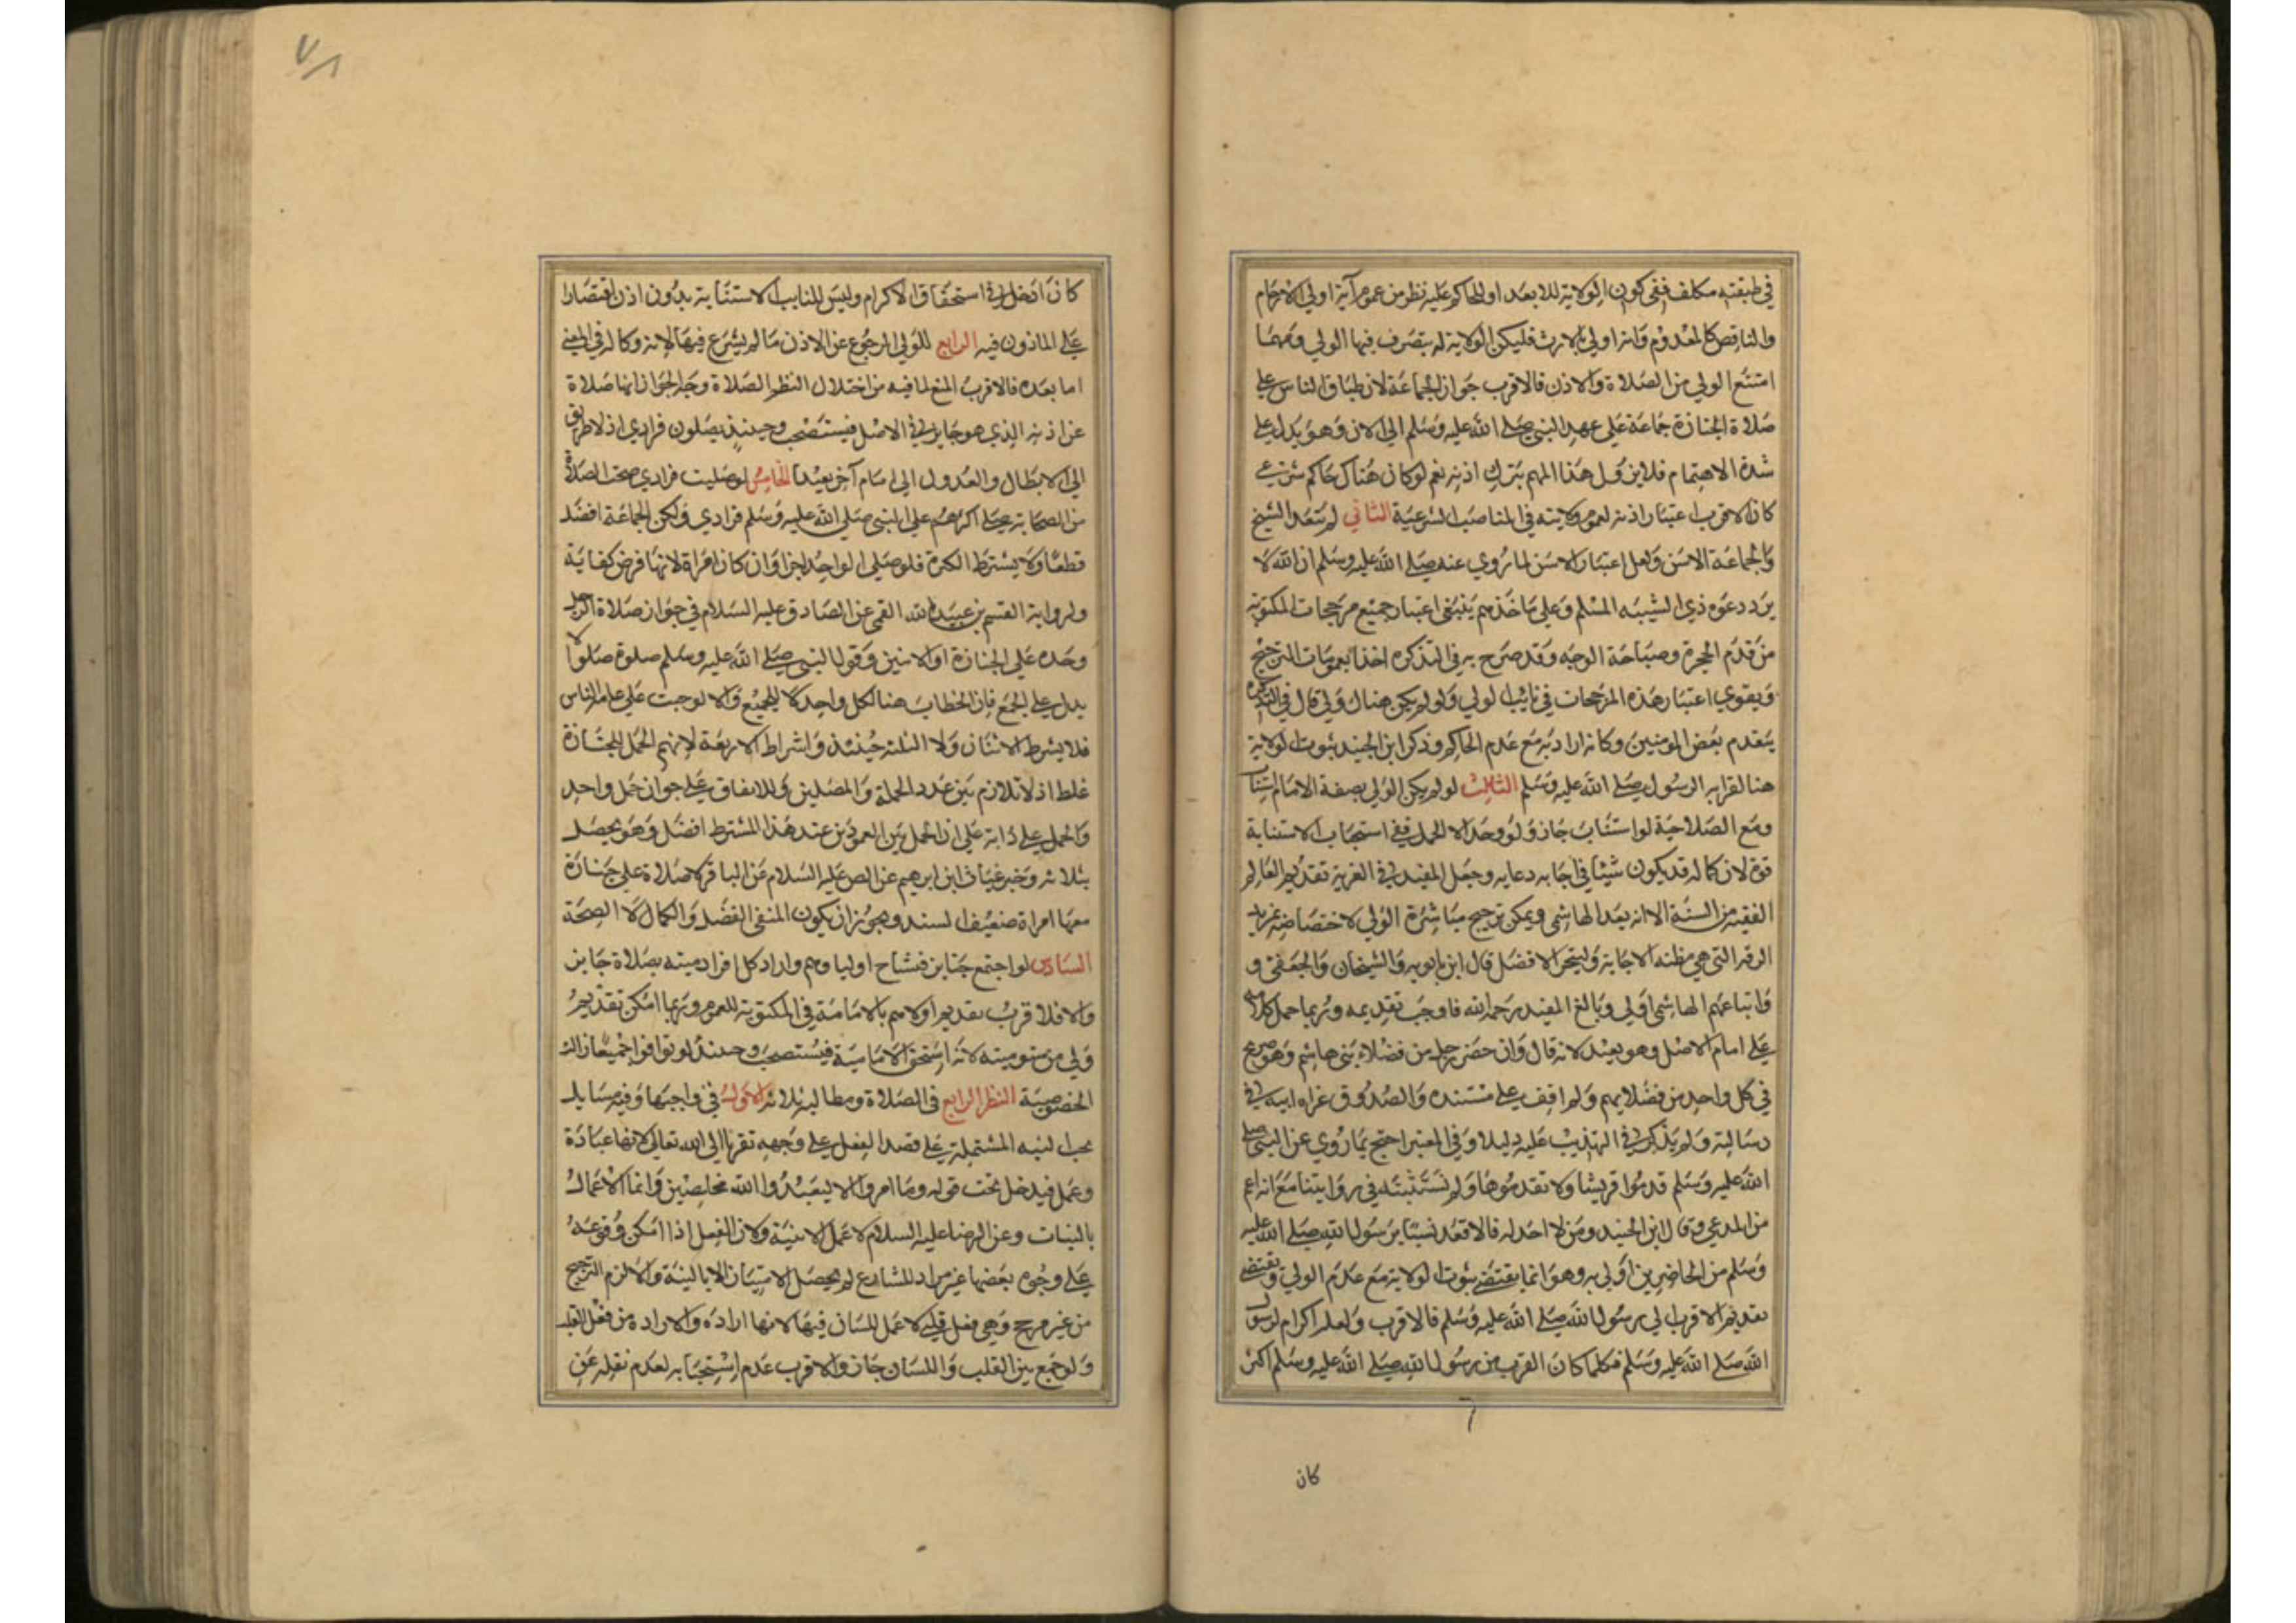 في طبقته مكلف ففي كون الولاية للابعد او للحاكم عليه نظر من عموم آية اولي الارحام
والناقص كالمعدوم وانه اولي بالارث فليكن الولاية له يتصرف فيها الولي ومهما
امتنع الولي من الصلاة والاذن فالاقرب جواز الجماعة لاطباق الناس علي
صلاة الجنازة جماعة علي عهد النبي صلي الله عليه وسلم الي الان وهو يدل علي
شدة الاهتمام فلا يزول هذا المهم بترك اذنه نعم لو كان هناك حاكم شرعي
كان الاقرب اعتبار اذنه لعموم ولايته في المناصب الشرعية الثاني لم يتعد الشيخ
والجماعة الاسن ولعل اعتبار الاسن لما روي عنه صلي الله عليه وسلم ان الله لا
يرد دعوه ذي الشيبه المسلم وعلي ماخذهم ينبغي اعتبار جميع مرجحات المكتوبة
من قدم الهجرة وصباحة الوجه وقد صرح به في التذكره اخذا بعمومات الترجيح
ويقوي اعتبار هذه المرجحات في نائب الولي ولو لم يكن هناك ولي قال في التذكرة
يتقدم بعض المومنين وكانه اراد به مع عدم الحاكم وذكر ابن الجنيد ثبوت الولاية
هنا لقرابه الرسول صلي الله عليه وسلم الثالث لو لم يكن الولي بصفة الامام استناب
ومع الصلاحية لو استناب جاز ولو وجد الاكمل ففي استحباب الاستنابة
قوة لان كماله قد يكون شيئا في اجابه دعايه وجعل المفيد في الغرية تقديم العالم
الفقيه من السنة الا انه بعد الهاشمي ويمكن ترجيح مباشرة الولي لاختصاصه بمزيد
الرقه التي هي مظنه الاجابة وليتحر الافضل قال ابن بابويه والشيخان والجعفي و
واتباعهم الهاشمي اولي وبالغ المفيد رحمه الله فاوجب تقديمه وربما حمل كلامه
علي امام الاصل وهو بعيد لانه قال وان حضر رجل من فضلاء بني هاشم وهو صريح
في كل واحد من فضلايهم ولم اقف علي مستنده والصدوق عزاه ابيه في
رسالته ولم يذكر في التهذيب عليه دليلا وفي المعتبر احتج بما روي عن النبي صلي
الله عليه وسلم قدموا قريشا ولا تقدموها ولم نستثبته في رواياتنا مع انه اعم
من المدعي وقال ابن الجنيد ومن لا احد له فالاقعد نسبا برسول الله صلي الله عليه
وسلم من الحاضرين اولي به وهو انما يقتضي ثبوت الولاية مع عدم الولي ويقتضي
تقديم الاقرب الي رسول الله صلي الله عليه وسلم فالاقرب ولعله اكرام لرسول
الله صلي الله عليه وسلم فكلما كان القرب من رسول الله صلي الله عليه وسلم اكثر
كان
٧١
كان ادخل في استحقاق الاكرام وليس للنايب الاستنابة بدون اذن اقتصارا
علي الماذون فيه الرابع للولي الرجوع عن الاذن ما لم يشرع فيها لانه وكاله في المعني
اما بعده فالاقرب المنع لما فيه من اختلال النظر الصلاة وجه الجواز انها صلاة
عن اذنه الذي هو جايز في الاصل فيستصحب وحينئذ يصلون فرادي اذ لا طريق
الي الابطال والعدول الي امام آخر بعيد الخامس لو صليت فرادي صحت الصلاة
من الصحابة صلي اكثرهم علي النبي صلي الله عليه وسلم فرادي ولكن الجماعة افضل
قطعا ولا يشترط الكثرة فلو صلي الواحد اجزا وان كان امراة لانها فرض كفاية
ولرواية القسم بن عبيد الله القمي عن الصادق عليه السلام في جواز صلاة الرجل
وحده علي الجنازة او الاثنين وقول النبي صلي الله عليه وسلم صلوة صلوا لا
يدل علي الجمع فان الخطاب هنا لكل واحد لا للجميع والا لوجبت علي عامة الناس
فلا يشترط الاثنان ولا الثلثه حينئذ واشتراط الاربعة لانهم الحمل للجنازة
غلط اذ لا تلازم بين عدد الحملة والمصلين وللاتفاق علي جواز حمل واحد
والحمل علي دابة علي ان الحمل بين العمودين عند هذا المشترط افضل وهو يحصل
بثلاثه وخبر غياث ابن ابرهيم عن الص عليه السلام عن الباقر لا صلاة علي جنازة
معها امراة ضعيف السند ويجوز ان يكون المنفي الفضل والكمال لا الصحة
السادس لو اجتمع جنايز فتشاح اولياوهم واراد كل افراد ميته بصلاة جايز
والا فلاقرب تقديم اولاهم بالامامة في المكتوبة للعموم وربما امكن تقديم
ولي من سبق ميته لانه استحق الامامية فيستصحب وحينئذ لو توافوا جميعا زالت
الخصوصية النظر الرابع في الصلاة ومطالبه ثلاثه الاول في واجبها وفيه مسايل
يجب النيه المشتملة علي قصد الفعل علي وجهه تقربا الي الله تعالي لانها عبادة
وعمل فيدخل تحت قوله وما امروا الا ليعبدوا الله مخلصين وانما الاعمال
بالنيات وعن الرضا عليه السلام لا عمل الا بنية ولان الفعل اذا امكن وقوعه
علي وجوه بعضها غير مراد للشارع لم يحصل الامتثال الا بالنية والا لزم الترجيح
من غير مرجح وهي فعل قلبي لا عمل للسان فيها لانها اراده والاراده من فعل القلب
ولو جمع بين القلب واللسان جاز والاقرب عدم استحبابه لعدم نقله عن